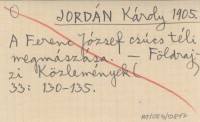 JORDÁN Károly 1905.
A Ferenc József csúcs téli
megmászása. — Földraj-
zi Közlemények
33: 130-135.